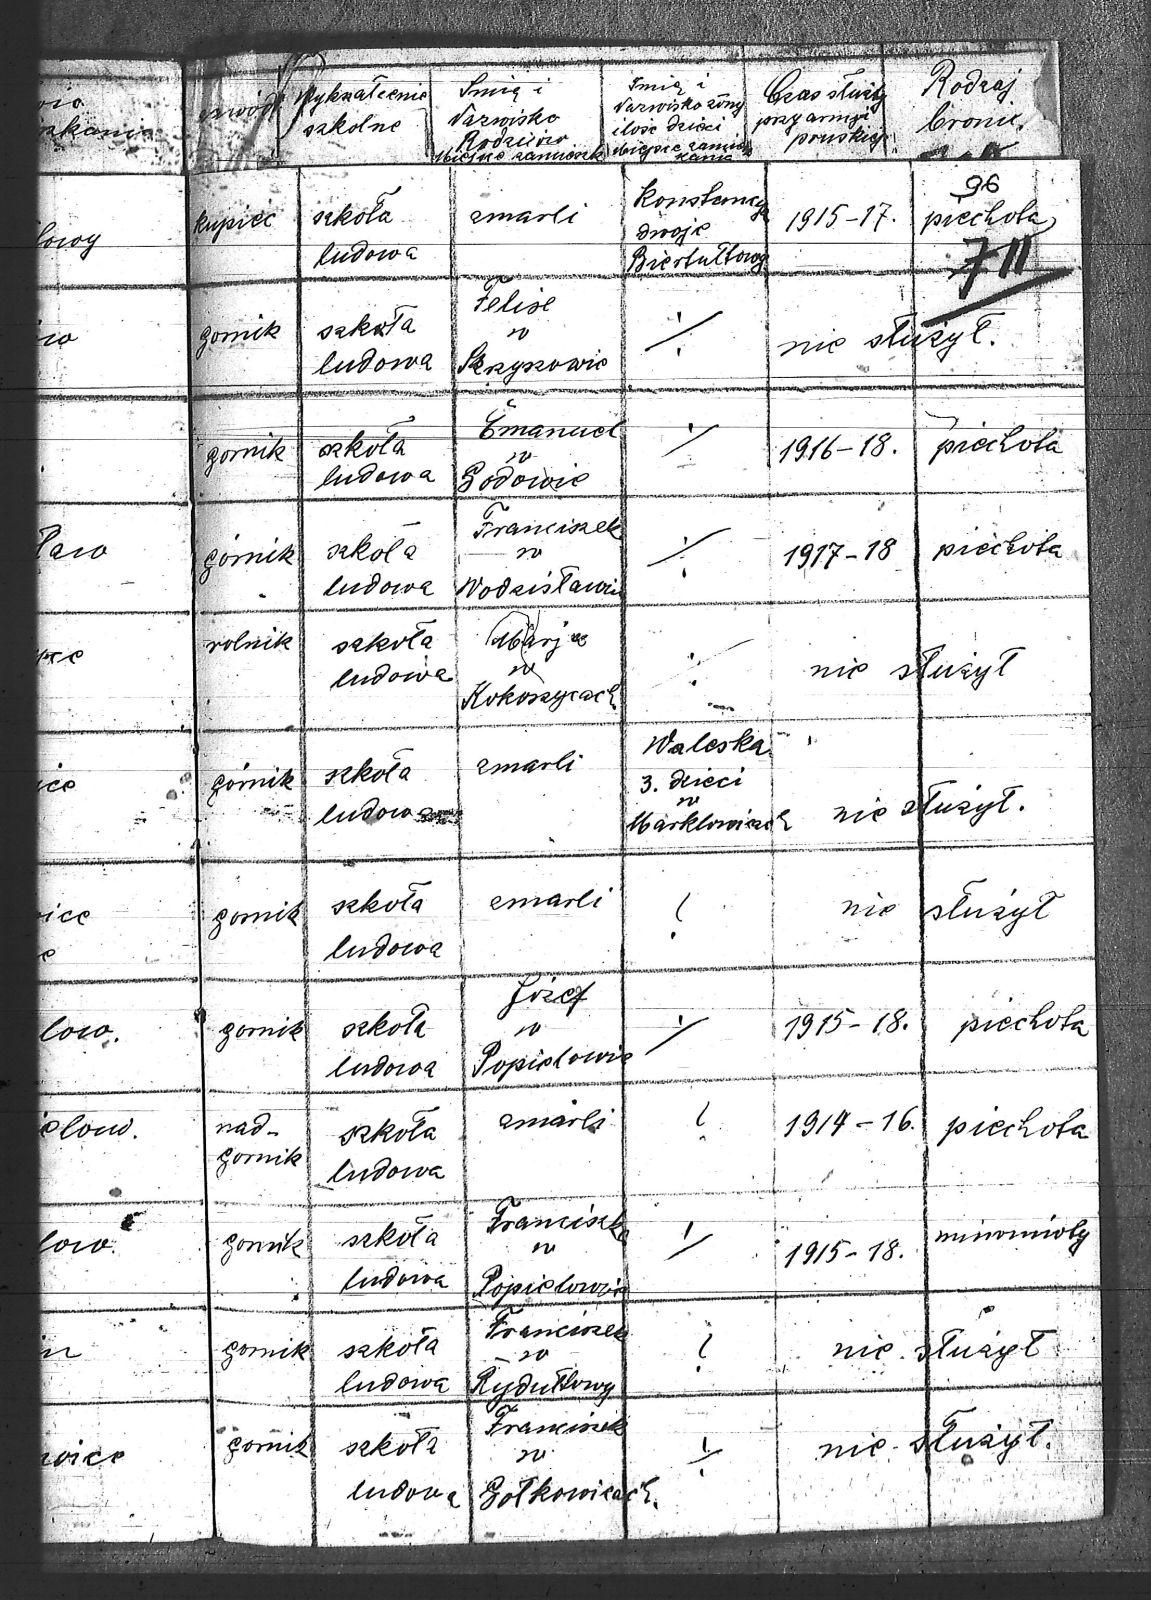 zawód
Wykształcenie
szkolne
Imię i
Nazwisko
Rodziców
Miejsce zamieszk
Imię i
Nazwisko żony
ilość dzieci
Miejsce zamiesz
kania
Czas służby
przy armji
pruskiej
Rodzaj
broni.
96
7 II
kupiec
szkoła
ludowa
zmarli
Konstancya
dwoje
Biertułtowy
1915-17.
piechota
górnik
szkoła
ludowa
Felise
w
Skrzyszowie
nie służył.
gornik
szkoła
ludowa
Emanuel
w
Godowie
1916-18.
piechota
górnik
szkoła
ludowa
Franciszek
w
Wodzisławiu
1917-18
piechota
rolnik
szkoła
ludowa
Marja
w
Kokoszycach
nie służył
górnik
szkoła
ludowa
zmarli
Waleska
3. dzieci
w
Marklowicach
nie służył.
gornik
szkoła
ludowa
zmarli
nie służył
gornik
szkoła
ludowa
Józef
w
Popielowie
1915-18.
piechota
nad-
gornik
szkoła
ludowa
zmarli
1914-16.
piechota
gornik
szkoła
ludowa
Franciszka
w
Popielowie
1915-18.
minomioty
gornik
szkoła
ludowa
Franciszek
w
Rydułtowy
nie służył
gornik
szkoła
ludowa
Franciszek
w
Gołkowicach.
nie służył.